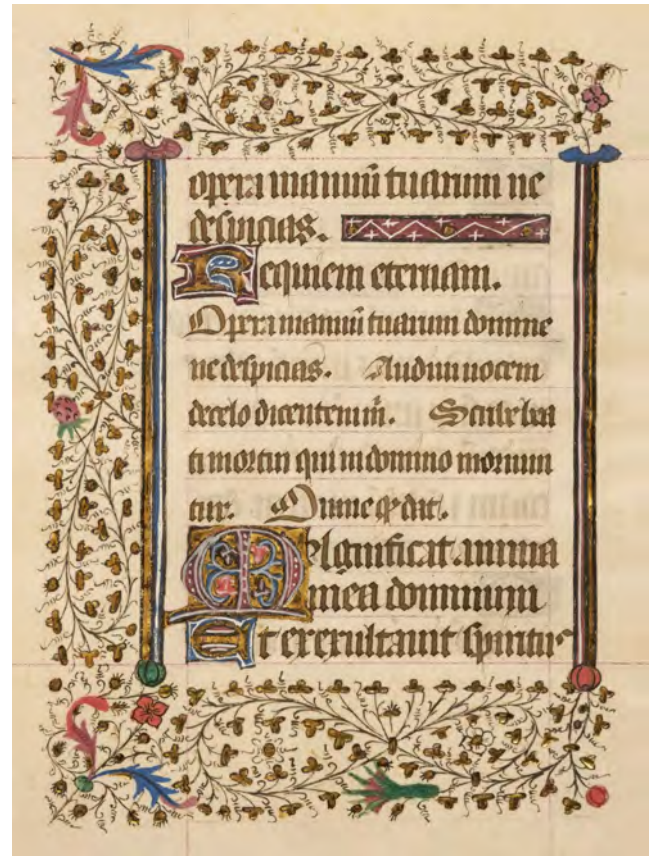 opera manuū tuarum ne
despicias.
Requiem eternam.
Opera manuū tuarum domine
ne despicias. Audiui uocem
de celo Scribe bea
ti mortui qui in domino moriun
tur. Omne dat.
Magnificat anima
mea dominum
Et exexultauit spiritus